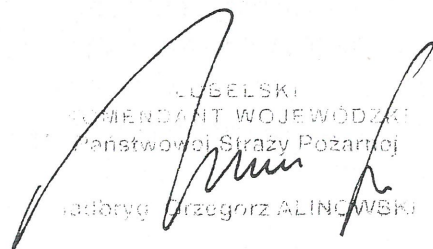 LUBELSKI
KOMENDANT WOJEWÓDZKI
Państwowej Straży Pożarnej
nadbryg. Grzegorz ALINOWSKI